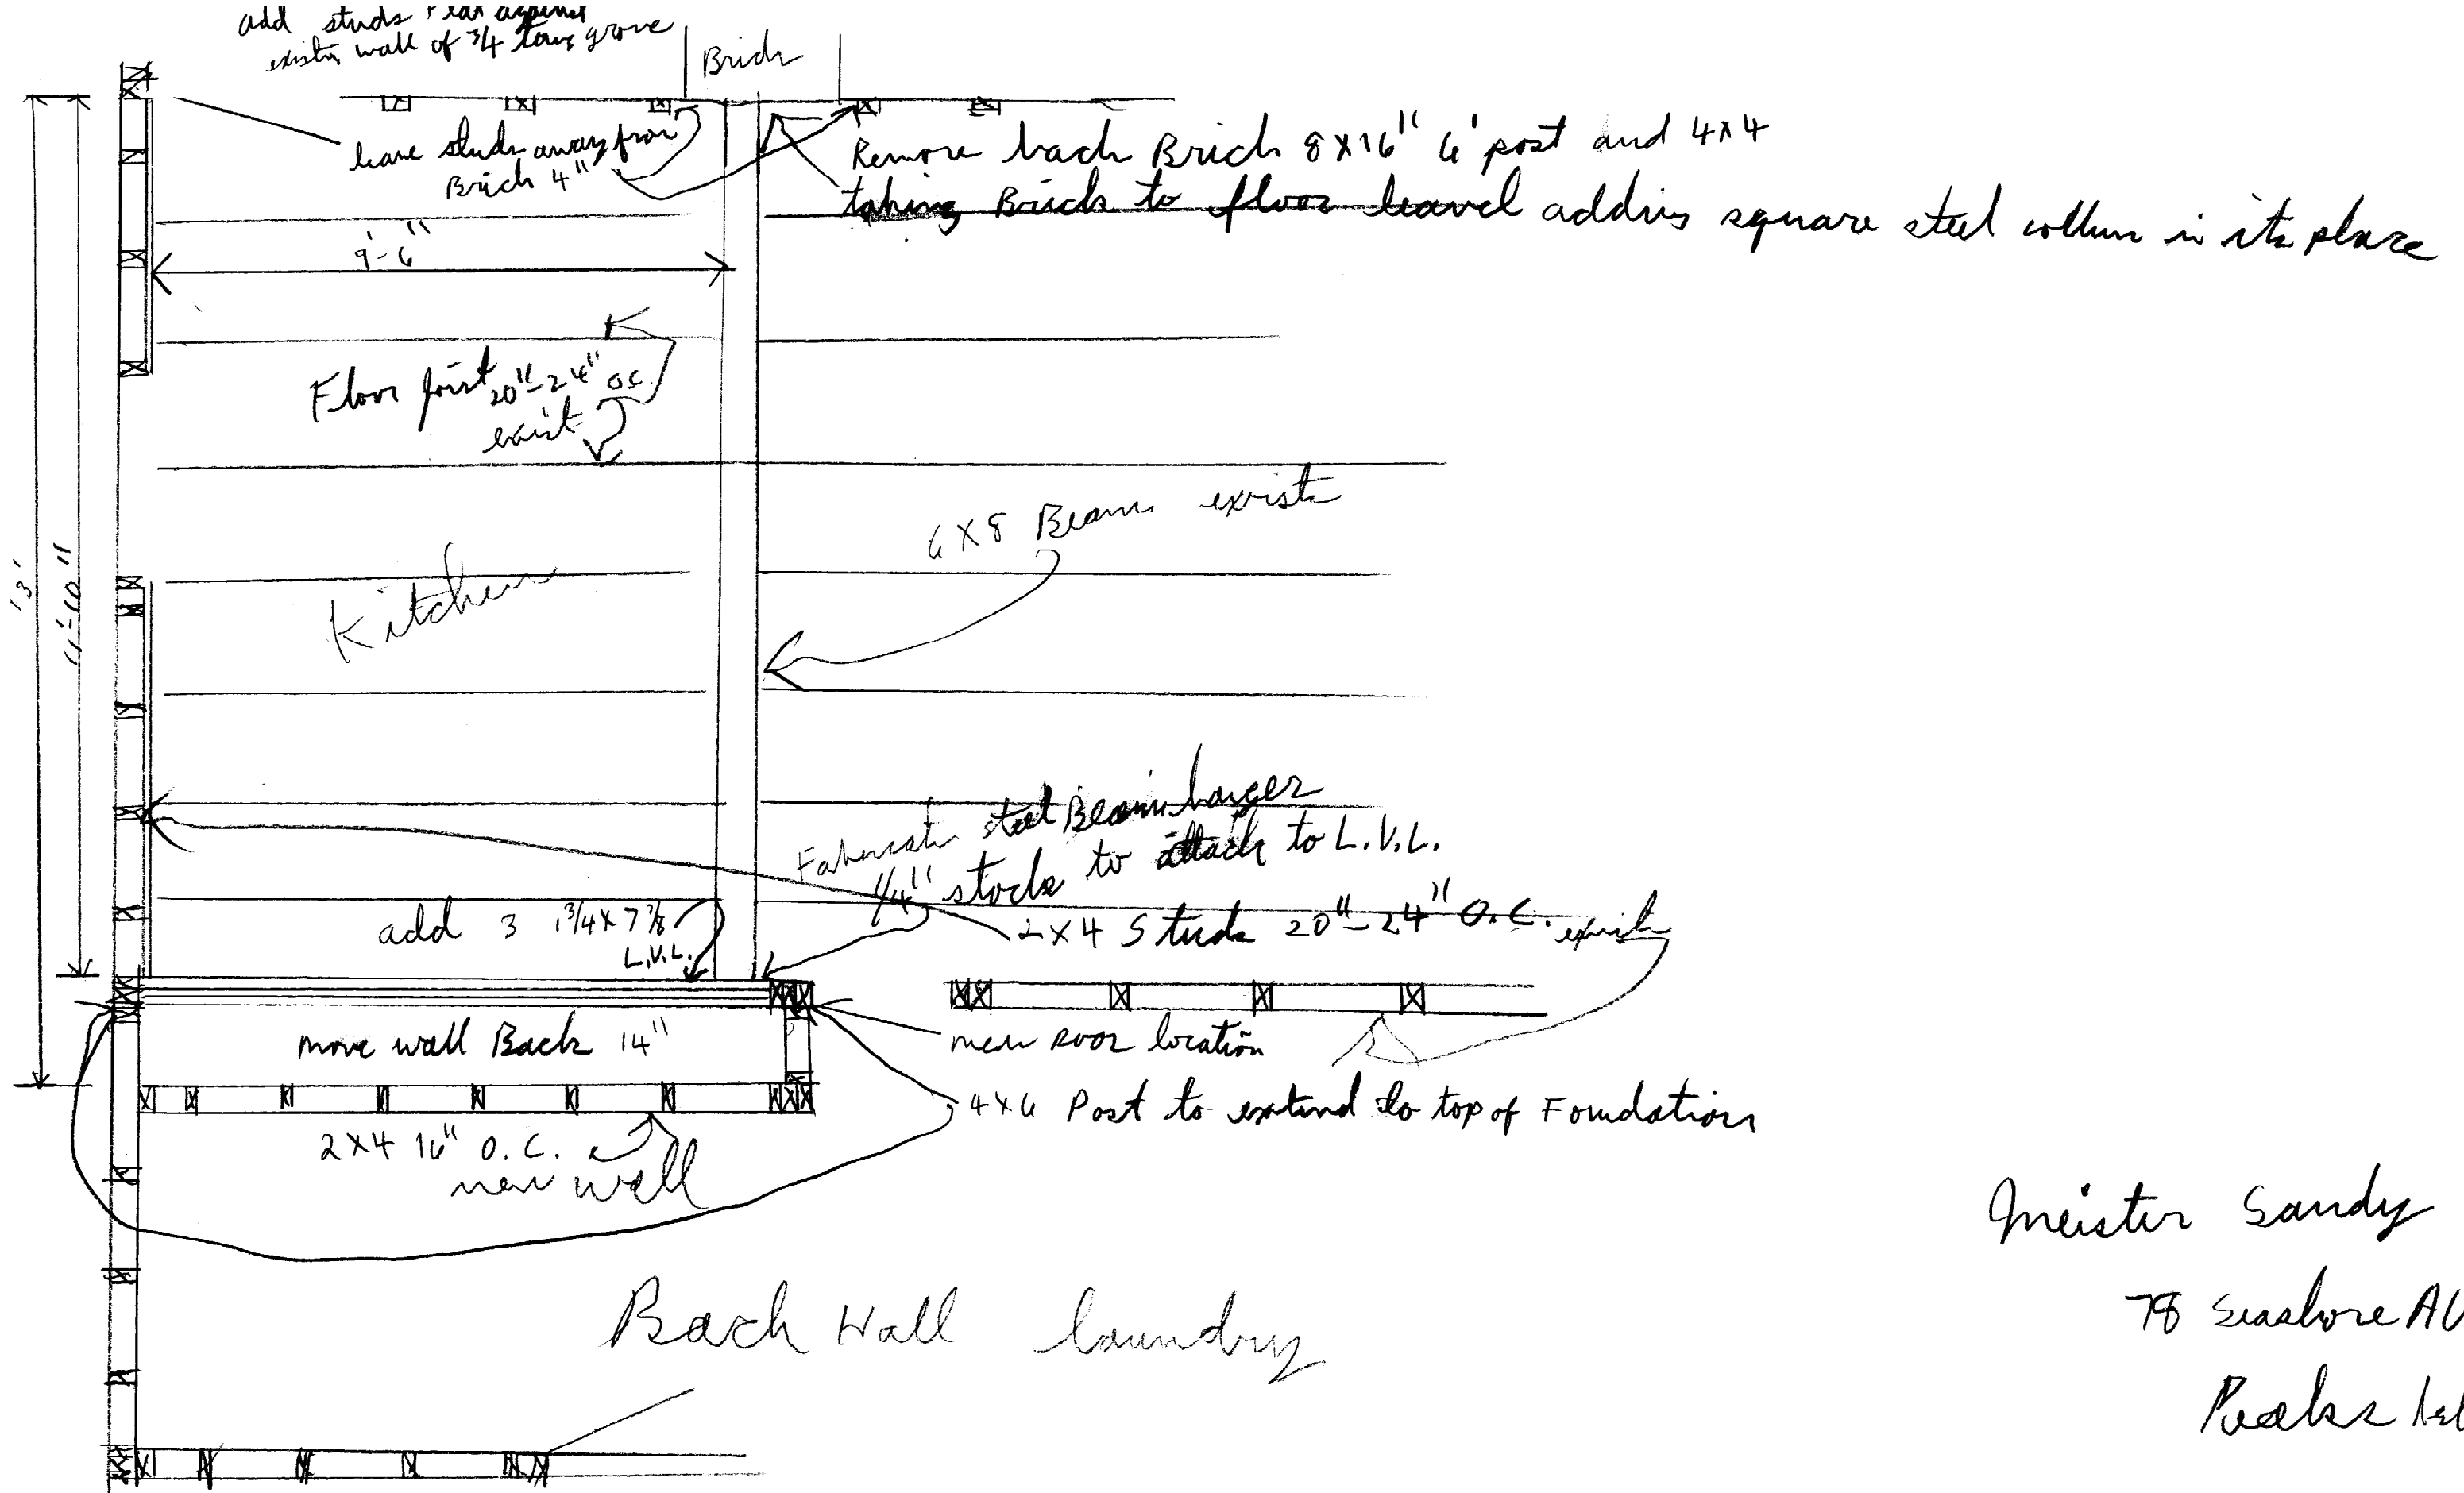 add studs flat against
existin wall of 3/4 tong grove
Brick
leave studs away from
Brick 4"
Remove back Brick 8x16" 6' post and 4x4
taking Brick to floor leavel adding square steel collum in its place
9'-6"
Floor joist 20"-24" O.C.
exist
6x8 Beam exist
13'
11'-10"
Kitchen
Fabricate steel Beam hanger
1/4" stock to attach to L.V.L.
add 3 1 3/4 x 7 7/8
L.V.L.
2x4 Studs 20"-24" O.C. exist
move wall Back 14"
new door location
4x6 Post to extend to top of Foundation
2x4 16" O.C.
new wall
Meister Sandy
78 Seashore AV
Peaks Isl
Back Wall laundry